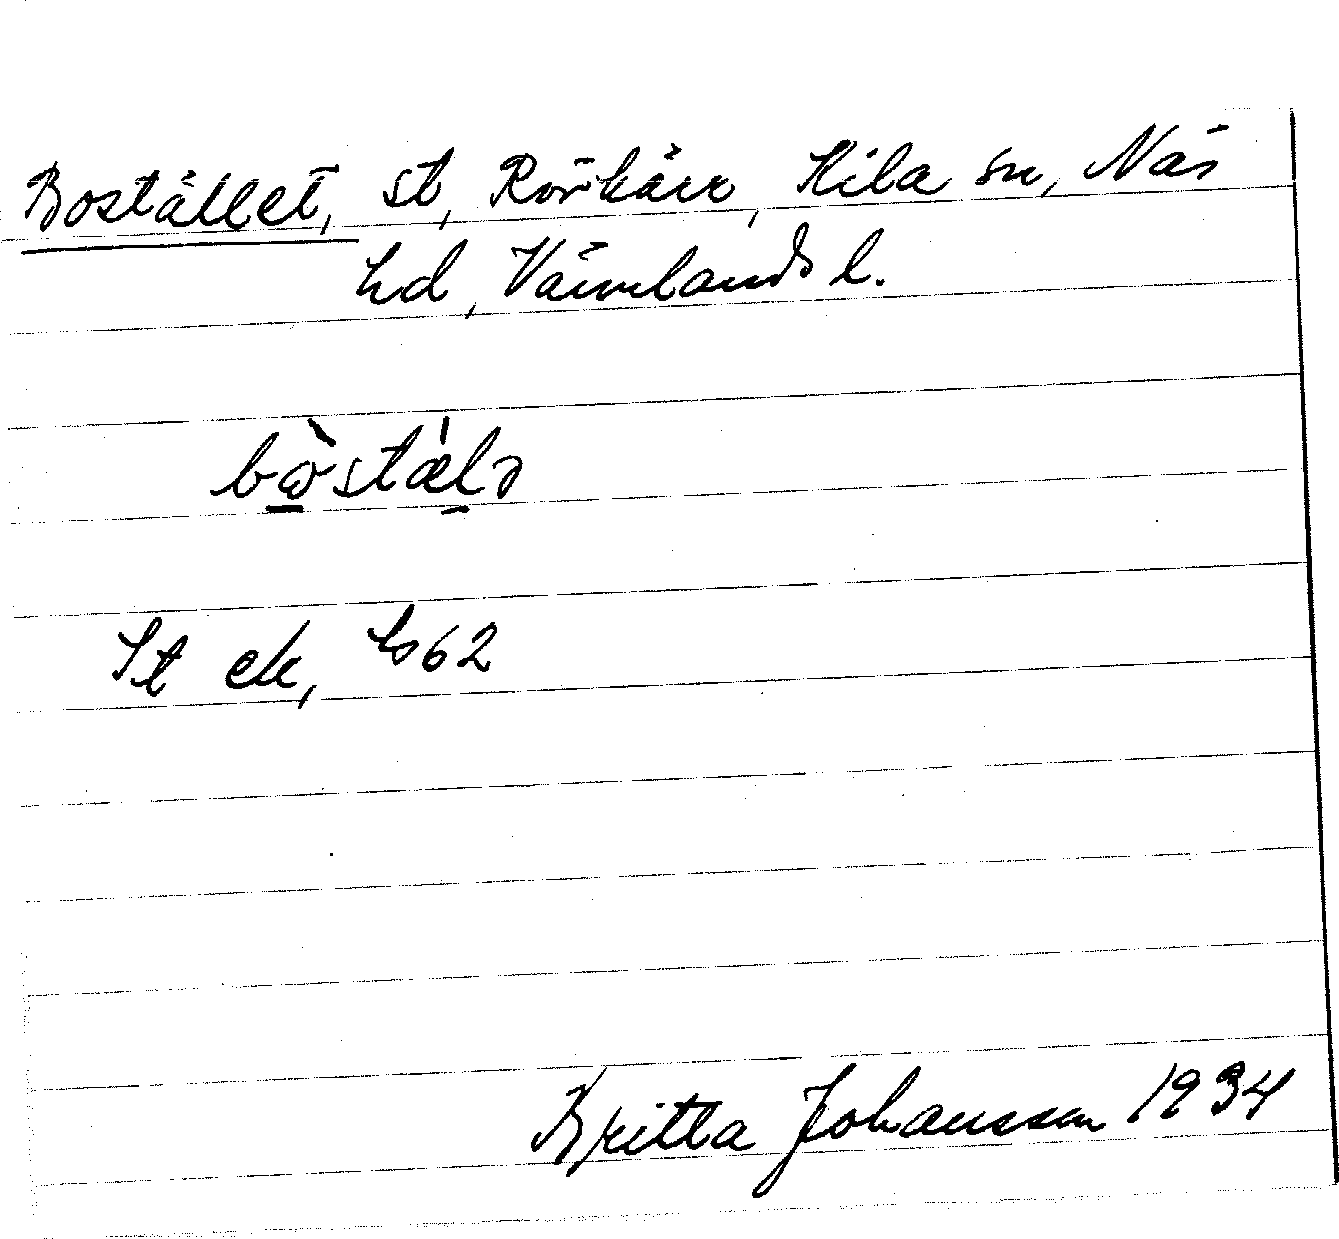 Bostället, st, Rörkärr, Kila sn, Näs
hd, Värmlands l.
bὼstæ̀lə
St ek,
Britta Johansson 1934